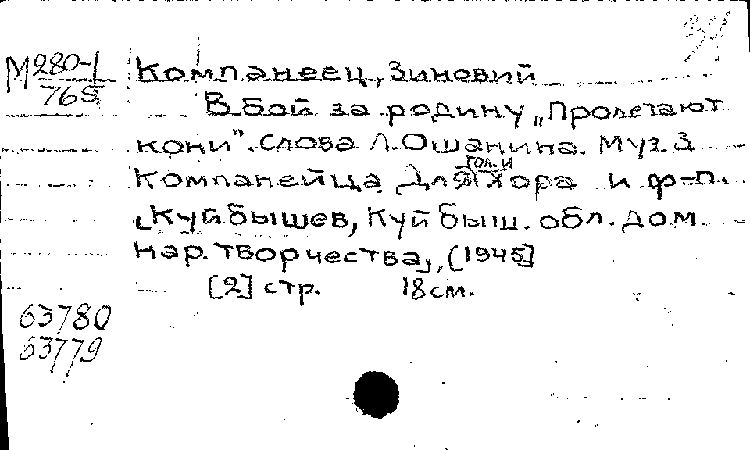 34
М 280-1
765
Компанеец, Зиновий
В бой за родину „Пролетают
кони". Слова Л. Ошанина. Муз. З.
Компанейца. Для гол. и хора и ф-п.
[Куйбышев, Куйбыш. обл. дом.
нар. творчества], (1945]
[2] стр. 18 см.
63780
63779